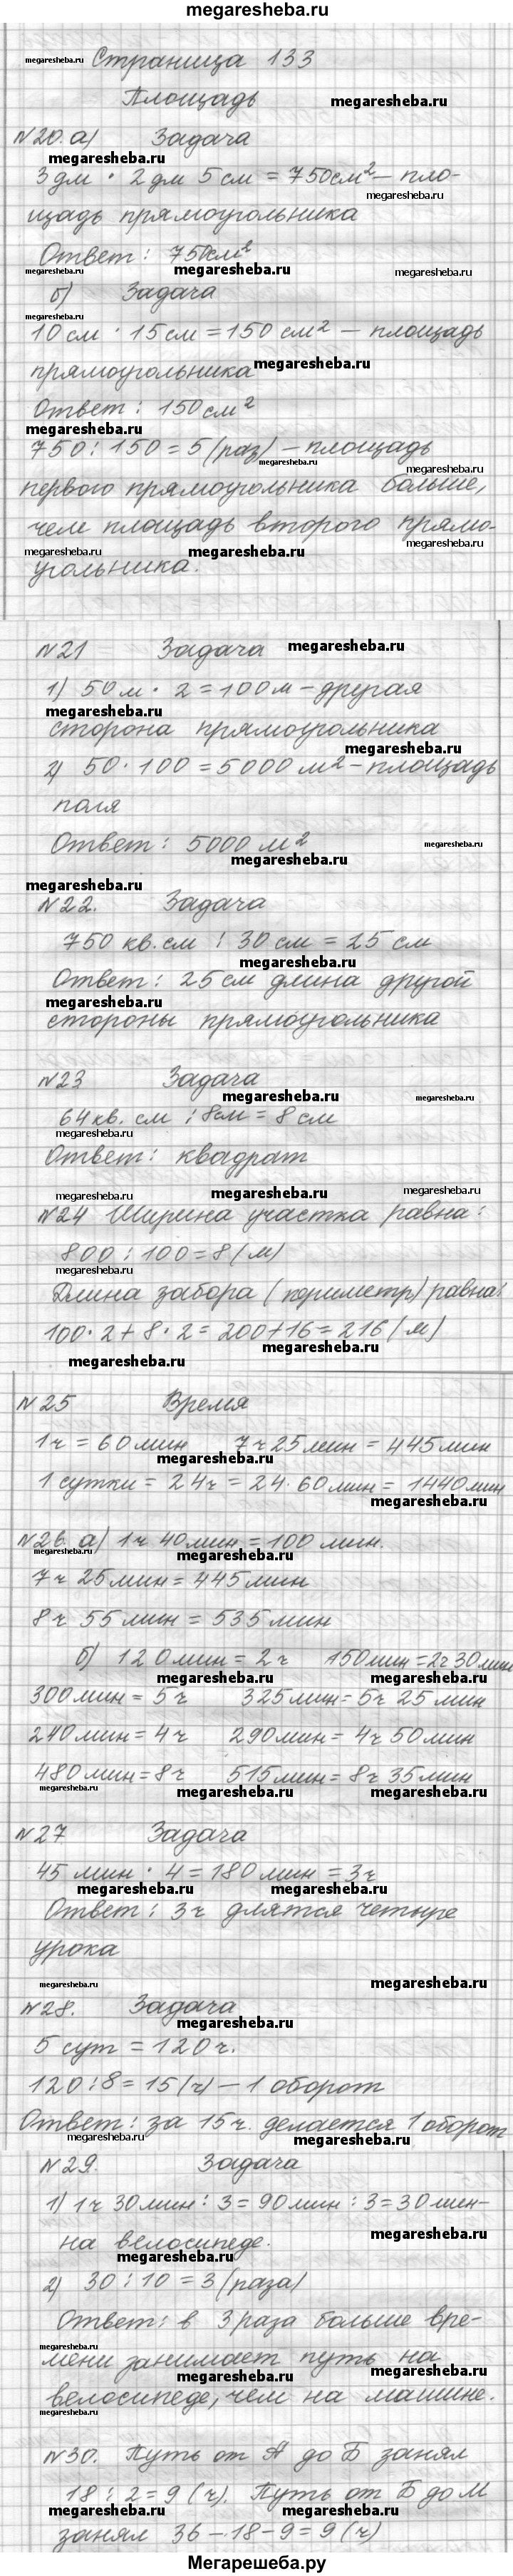 megaresheba.ru
megaresheba.ru Страница 133
Площадь megaresheba.ru
№20. а) Задача
megaresheba.ru
3 дм · 2 дм 5 см = 750см² – пло-
megaresheba.ru
щадь прямоугольника
Ответ: 750см²
megaresheba.ru megaresheba.ru megaresheba.ru
б) Задача
megaresheba.ru
10 см · 15 см = 150 см² – площадь
прямоугольника megaresheba.ru
Ответ: 150 см²
megaresheba.ru
750 : 150 = 5 (раз) – площадь
megaresheba.ru megaresheba.ru
первого прямоугольника больше,
чем площадь второго прямо-
megaresheba.ru megaresheba.ru megaresheba.ru
угольника.
№21 Задача megaresheba.ru
1) 50 м · 2 = 100 м – другая
megaresheba.ru
сторона прямоугольника
megaresheba.ru
2) 50 · 100 = 5000 м² – площадь
поля
Ответ: 5000 м² megaresheba.ru
megaresheba.ru
megaresheba.ru
№22. Задача
750 кв. см : 30 см = 25 см
megaresheba.ru
Ответ: 25 см длина другой
megaresheba.ru
стороны прямоугольника
№23 Задача
megaresheba.ru megaresheba.ru
64 кв. см : 8см = 8 см
megaresheba.ru
Ответ: квадрат
megaresheba.ru megaresheba.ru megaresheba.ru
№24 Ширина участка равна:
800 : 100 = 8 (м)
megaresheba.ru
Длина забора (периметр) равна:
100 · 2 + 8 · 2 = 200 + 16 = 216 (м)
megaresheba.ru
megaresheba.ru
№25 Время
1 ч = 60 мин 7 ч 25 мин = 445 мин
megaresheba.ru
1 сутки = 24 ч = 24 · 60 мин = 1440 мин
megaresheba.ru
№26. а) 1 ч 40 мин = 100 мин.
megaresheba.ru megaresheba.ru
7 ч 25 мин = 445 мин
8 ч 55 мин = 535 мин
б) 120 мин = 2 ч 150 мин = 2 ч 30 мин
megaresheba.ru megaresheba.ru
300 мин = 5 ч 325 мин = 5 ч 25 мин
240 мин = 4 ч 290 мин = 4 ч 50 мин
480 мин = 8 ч 515 мин = 8 ч 35 мин
megaresheba.ru megaresheba.ru megaresheba.ru
№27 Задача
45 мин · 4 = 180 мин = 3 ч
megaresheba.ru megaresheba.ru
Ответ: 3 ч длятся четыре
урока
megaresheba.ru megaresheba.ru
№28. Задача
megaresheba.ru
5 сут = 120 ч.
120 : 8 = 15 (ч) – 1 оборот
Ответ: за 15 ч. делается 1 оборот
megaresheba.ru megaresheba.ru
№29. Задача
1) 1 ч 30 мин : 3 = 90 мин : 3 = 30 мин –
megaresheba.ru
на велосипеде.
megaresheba.ru
2) 30 : 10 = 3 (раза)
Ответ: в 3 раза больше вре-
megaresheba.ru
мени занимает путь на
megaresheba.ru megaresheba.ru
велосипеде, чем на машине.
megaresheba.ru
№30. Путь от А до Б занял
18 : 2 = 9 (ч). Путь от Б до М
megaresheba.ru megaresheba.ru
занял 36 – 18 – 9 = 9 (ч)
Мегарешеба.ру